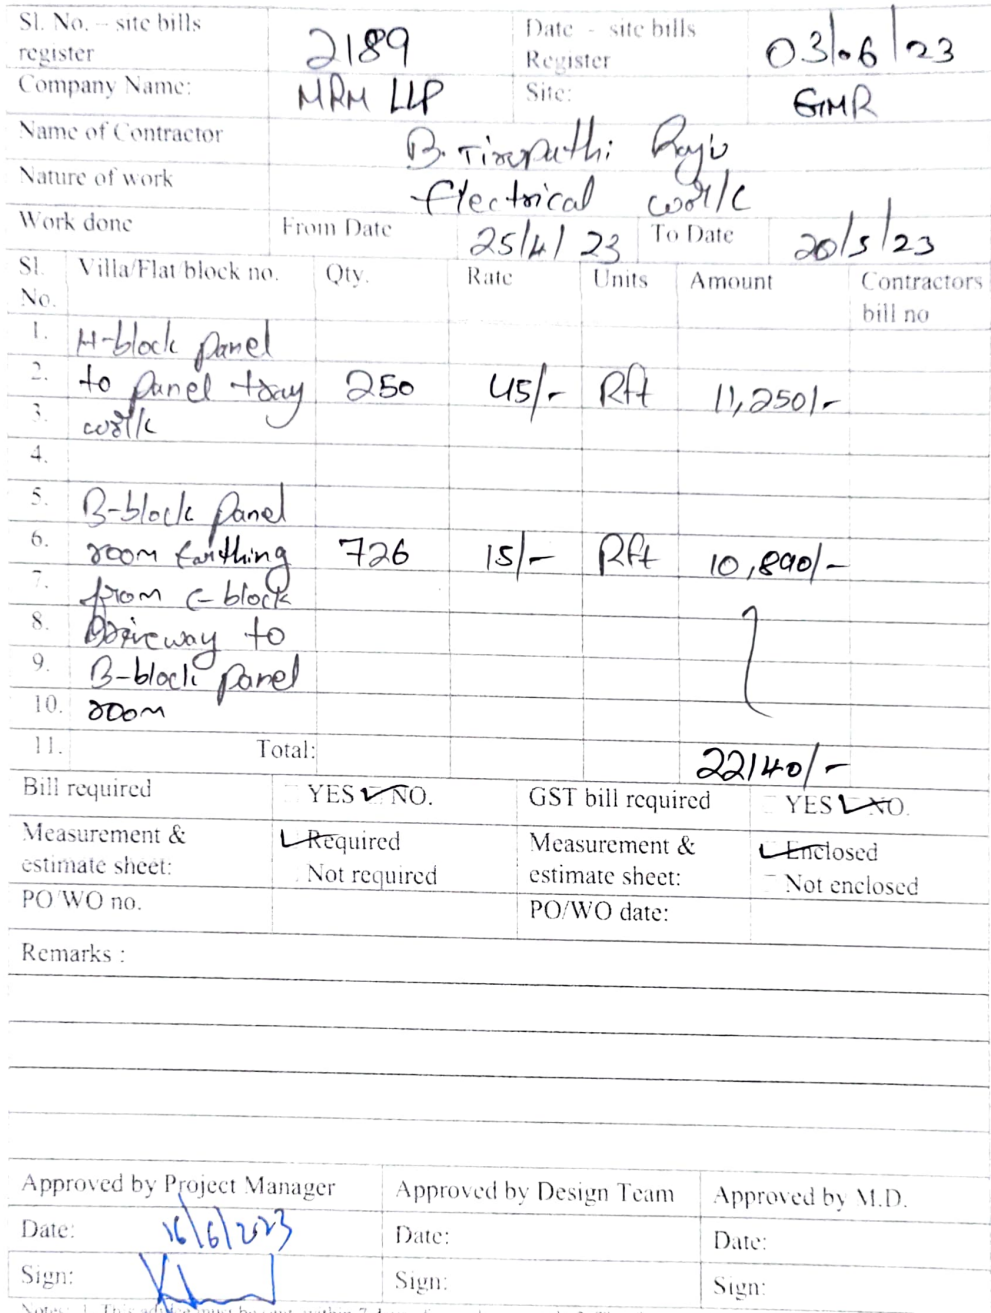 Sl. No. – site bills register 2189 Date - site bills Register 03/06/23
Company Name: MRM LLP Site: GMR
Name of Contractor B. Tirupathi Raju
Nature of work Electrical work
Work done From Date 25/4/23 To Date 20/5/23
Sl. No. Villa/Flat/block no. Qty. Rate Units Amount Contractors bill no
1. H-block panel
2. to panel tray 250 45/- Rft 11,250/-
3. work
4.
5. B-block panel
6. room Earthing 726 15/- Rft 10,890/-
7. from C-block
8. Driveway to
9. B-block panel
10. room
11. Total: 22140/-
Bill required YES NO. GST bill required YES NO.
Measurement & estimate sheet: Required Not required Measurement & estimate sheet: Enclosed Not enclosed
PO/WO no. PO/WO date:
Remarks :
Approved by Project Manager Approved by Design Team Approved by M.D.
Date: 16/6/2023 Date: Date:
Sign: Sign: Sign: